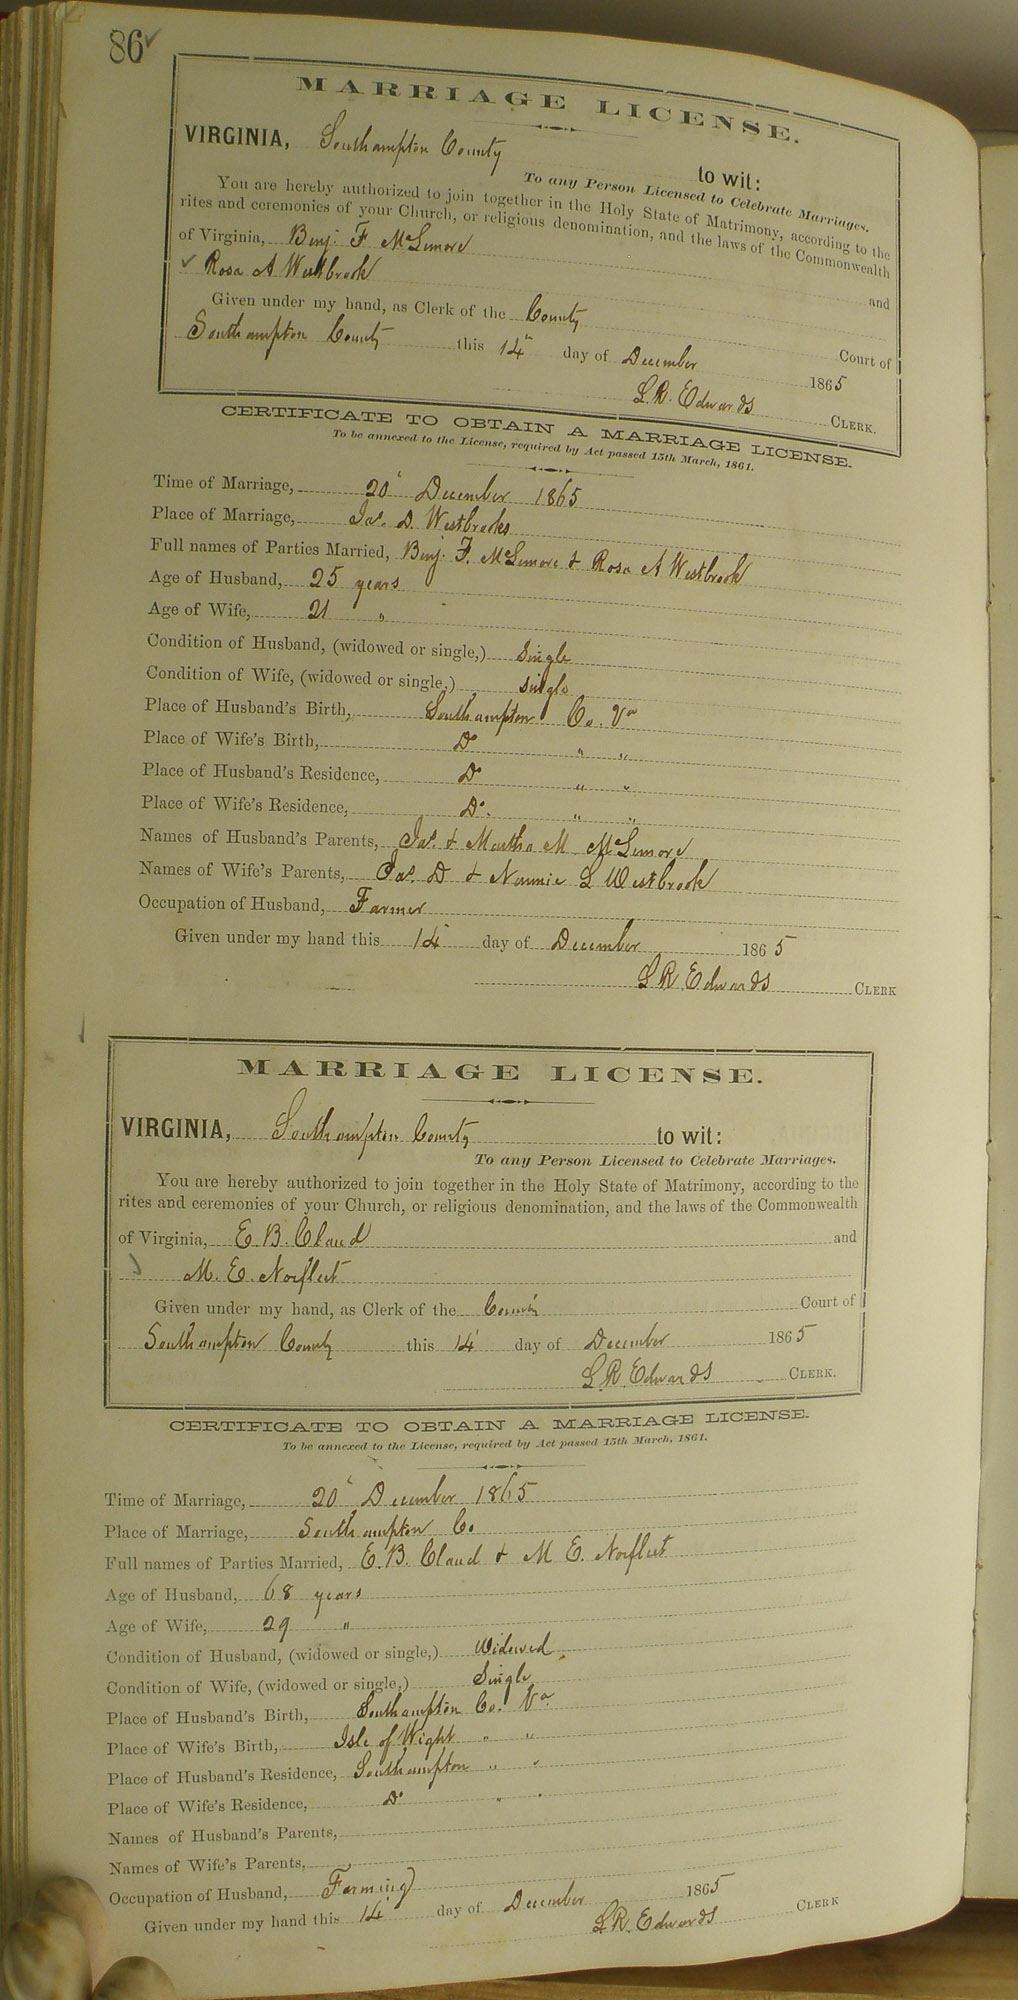 86✓
MARRIAGE LICENSE.
VIRGINIA, Southampton County to wit:
To any Person Licensed to Celebrate Marriages.
You are hereby authorized to join together in the Holy State of Matrimony, according to the
rites and ceremonies of your Church, or religious denomination, and the laws of the Commonwealth
of Virginia, Benj. F McLemore and
✓ Rosa A Westbrook
Given under my hand, as Clerk of the County Court of
Southampton County this 14" day of December 1865
L.R. Edwards CLERK.
CERTIFICATE TO OBTAIN A MARRIAGE LICENSE.
To be annexed to the License, required by Act passed 15th March, 1861.
Time of Marriage, 20" December 1865
Place of Marriage, Jas. D. Westbrooks
Full names of Parties Married, Benj. F. McLemore & Rosa A Westbrook
Age of Husband, 25 years
Age of Wife, 21 "
Condition of Husband, (widowed or single,) Single
Condition of Wife, (widowed or single,) single
Place of Husband's Birth, Southampton Co. Va
Place of Wife's Birth, Do " "
Place of Husband's Residence, Do " "
Place of Wife's Residence, Do. " "
Names of Husband's Parents, Jas. & Martha M McLemore
Names of Wife's Parents, Jas. D & Nannie L Westbrook
Occupation of Husband, Farmer
Given under my hand this 14" day of December 1865
L R. Edwards CLERK
MARRIAGE LICENSE.
VIRGINIA, Southampton County to wit:
To any Person Licensed to Celebrate Marriages.
You are hereby authorized to join together in the Holy State of Matrimony, according to the
rites and ceremonies of your Church, or religious denomination, and the laws of the Commonwealth
of Virginia, E. B. Claud and
M. E. Norfleet
Given under my hand, as Clerk of the County Court of
Southampton County this 14" day of December 1865
L.R. Edwards CLERK.
CERTIFICATE TO OBTAIN A MARRIAGE LICENSE.
To be annexed to the License, required by Act passed 15th March, 1861.
Time of Marriage, 20" December 1865
Place of Marriage, Southampton Co
Full names of Parties Married, E. B. Claud & M E. Norfleet
Age of Husband, 68 years
Age of Wife, 29 "
Condition of Husband, (widowed or single,) Widowed
Condition of Wife, (widowed or single,) Single
Place of Husband's Birth, Southampton Co. Va
Place of Wife's Birth, Isle of Wight " "
Place of Husband's Residence, Southampton " "
Place of Wife's Residence, Do " "
Names of Husband's Parents,
Names of Wife's Parents,
Occupation of Husband, Farming
Given under my hand this 14" day of December 1865
L.R. Edwards CLERK